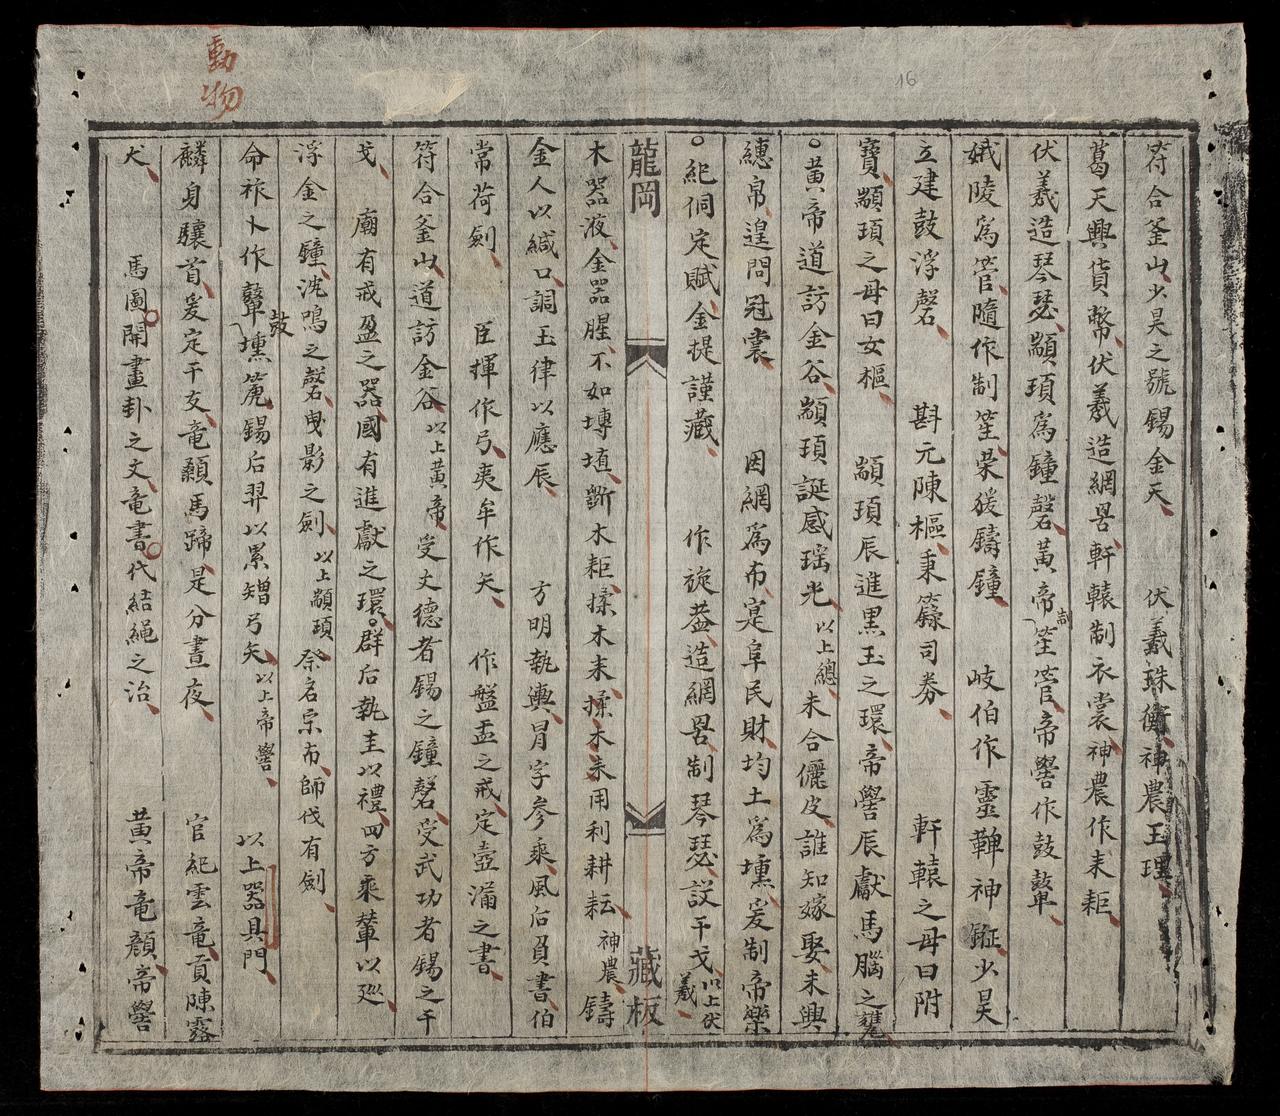 符合釜山少昊之號錫金天　伏羲珠衡神農玉理
葛天興貨幣伏羲造網罟軒轅制衣裳神農作耒耟
伏羲造琴瑟顓頊爲鐘磬黃帝笙管帝嚳作鼓鼙
娥陵爲管隨作制笙榮猨鑄鐘　岐伯作靈鞞神鉦少昊
立建鼓浮磬　斟元陳樞秉籙司券　軒轅之母曰附
寶顓頊之母曰女樞　顓頊辰進黑玉之環帝嚳辰獻馬腦之甕
○黃帝道訪金谷顓頊誕感瑶光以上總未合儷皮誰知嫁娶未興
繐帛遑問冠裳　因網爲布寔阜民財均土爲壎爰制帝樂
○紀侗定賦金提謹藏　作旋蓋造網罟制琴瑟設干戈以上伏羲
龍岡　藏板
木器液金器腥不如塼埴斷木耟揉木耒揉木耒用利耕耘神農鑄
金人以緘口調玉律以應辰　方明執輿冐字參乘風后負書伯
常荷劍　臣揮作弓夷牟作矢　作盤盂之戒定壺漏之書
符合釜山道訪金谷以上黃帝受文德者錫之鐘磬受武功者錫之干
戈　廟有戒盈之器國有進獻之環○群后執圭以禮四方乘輦以巡
浮金之鐘沈鳴之磬曳影之劍以上顓頊祭名宗布師伐有劍
命祚卜作鼙鼓壎箎錫后羿以累矰弓矢以上帝嚳　以上器具門
麟身驤首爰定干支竜顙馬蹄是分晝夜　官紀雲竜貢陳露
犬　馬圖開畫卦之文竜書代結繩之治　黃帝竜顏帝嚳
動物
16